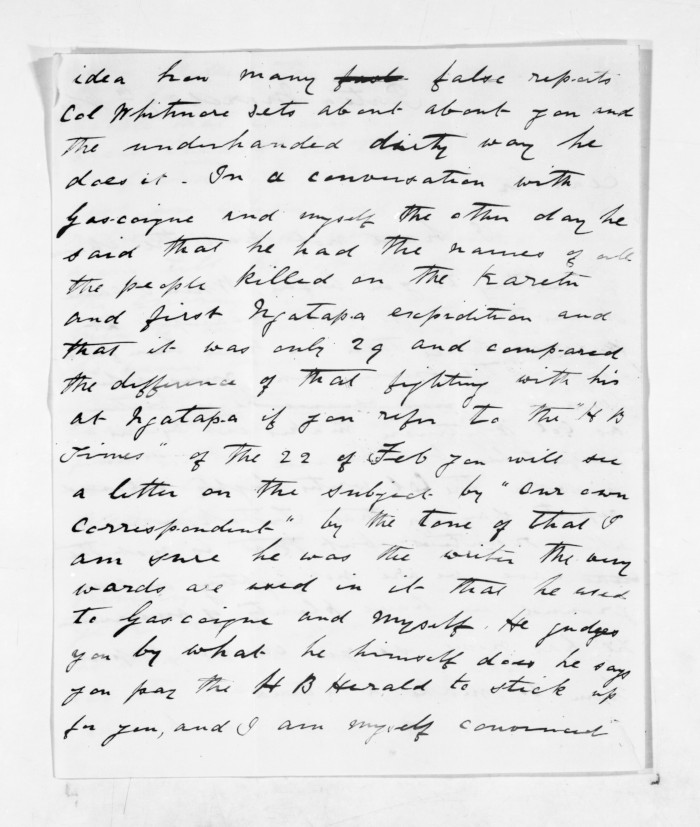 idea how many false reports
Col Whitmore sets about about you and
the underhanded dirty way he
does it. In a conversation with
Gascoigne and myself the other day he
said that he had the names of all
the people killed on the Karetu
and first Ngatapa expidition and
that it was only 29 and compared
the difference of that fighting with his
at Ngatapa if you refer to the "H B
Times" of the 22 of Feb you will see
a letter on the subject by "Our own
Correspondent" by the tone of that I
am sure he was the writer the very
words are used in it that he used
to Gascoigne and myself. He judges
you by what he himself does he says
you pay the H B Herald to stick up
for you, and I am myself convinced